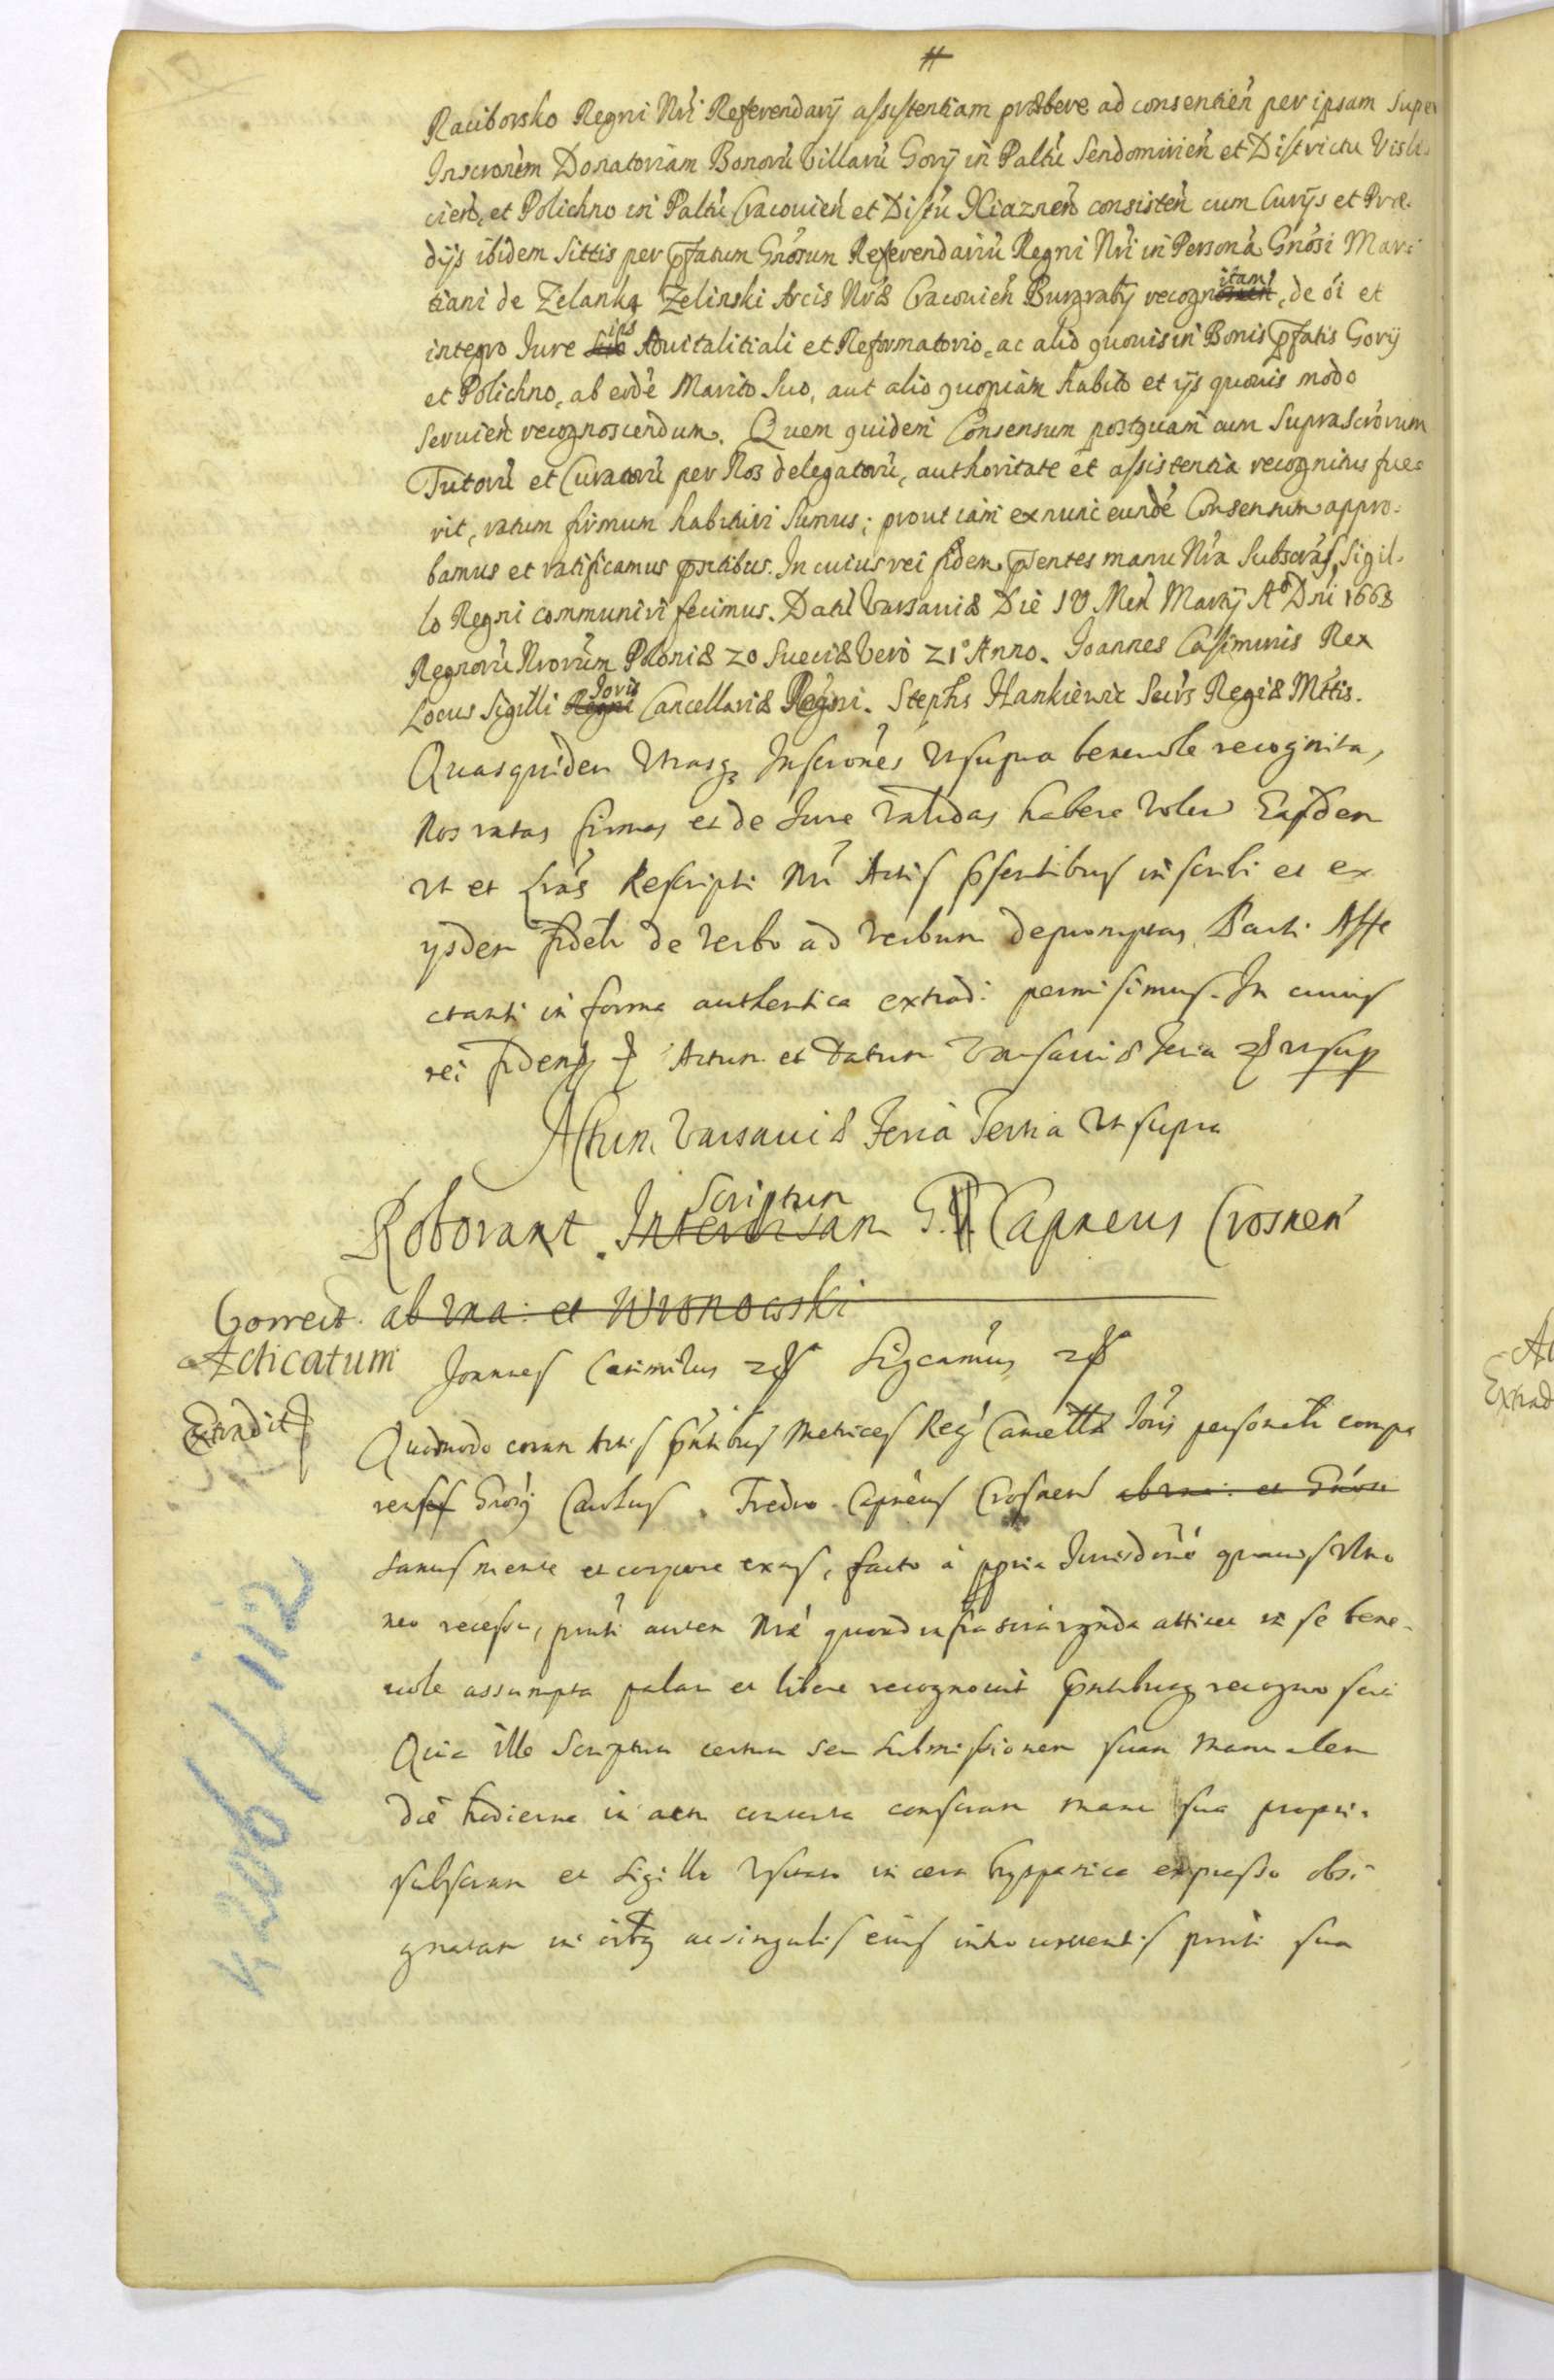 #
Raciborsko Regni Nri Referendarij assistentiam præbere ad consentien per ipsam Super
Inscronem Donatoriam Bonorũ Villarũ Gorij in Paltu Sendomirien et Districtu Vislicien, et Polichno in Paltu Cracouien et Distu Xiaznen consisten cum Curijs et Prædijs ibidem sittis per pfatum Gnosum Referendariũ Regni Nri in Persona Gnosi Martiani de Zelanka Zelinski Arcis Nræ Cracouien Burgrabij recognitam, de oi et
integro Jure ips Aduitalitiali et Reformatorio, ac alio quouis in Bonis pfatis Gorij
et Polichno, ab eode Marito Suo, aut alio quopiam habito et ijs quouis modo
seruien recognoscendum. Quem quidem Consensum postquam cum Suprascrorum
Tutorũ et Curatorũ per Nos delegatorũ, authoritate et assistentia recognitus fuerit, ratum firmum habituri Sumus; prout iam ex nunc eunde Consensum approbamus et ratificamus pntibus. In cuius rei fidem psentes manu Nra Subscras, Sigillo Regni communiri fecimus. Dat Varsauiæ Die 10 Men Martij Aº Dni 1668
Regnorũ Nrorum Poloniæ 20 Sueciæ Vero 21º Anno. Joannes Casimirus Rex
Locus Sigilli Regni Joris Cancellariæ Regni. Stephs Hankiewic Secrs Regiæ Mttis.
Quasquidem Vtrasq Inscrones Vt supra beneuole recognita,
Nos ratas firmas et de Jure Validas habere Volu Easdem
Vt et Lras Rescripti Nri Actis psentibus inscribi et ex
ysdem fideli de Verbo ad Verbum depromptas, Parti Affe
ctanti in forma authentica extradi permisimus. In cuius
rei fidem Actum et Datum Varsauiæ Feria
Actum Varsauiæ Feria Tertia Vt supra
Roborant Interuisam Scriptum G. Capneus Crosnen
Correct. ab Vna et Wronowski
Acticatum Joannes Casimirus Sigcamus
Extradit
Quomodo coram Actis pntibus Metrices Regj Cancellæ Joris personalr compa
rens Gnosij Carolus Fredro Capneus Crosnen ab Vna et Gnosi
Sanus mente et corpore exns, facto à ppria Jurisdone
neo recessu, prnti autem Nræ quoad infrascra attinet in se bene
uole assumpta palam et libere recognouit pntibusq recognoscit
Quia ille Scriptum certum seu submissionem suam Manualem
die hodierna in actu contenta conscram manu sua propria
subscram et Sigillo Vsitato in cera hyspanica expresso obsi
gnatam in oibq ac singulis eius introcontentis pncti sua
k 206 / 112